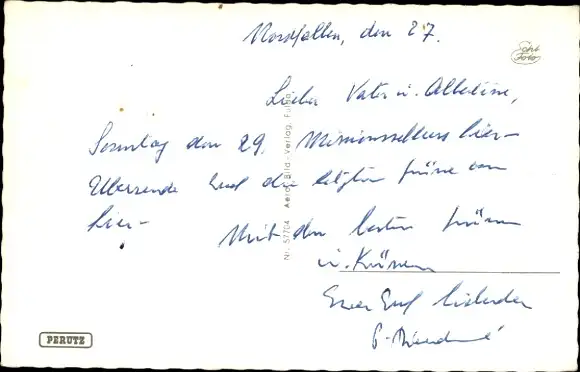 Nordhallen, den 27.
Echt
Foto
Lieber Vater u. Albertine,
Sonntag den 29. Missionsschluss hier-
Übersende Euch die letzten Grüsse von
hier-
Mit den besten Grüssen
u. Küssen
Euer Euch liebender
P.
Nr. 57704 Aero-Bild-Verlag, Fulda
PERUTZ